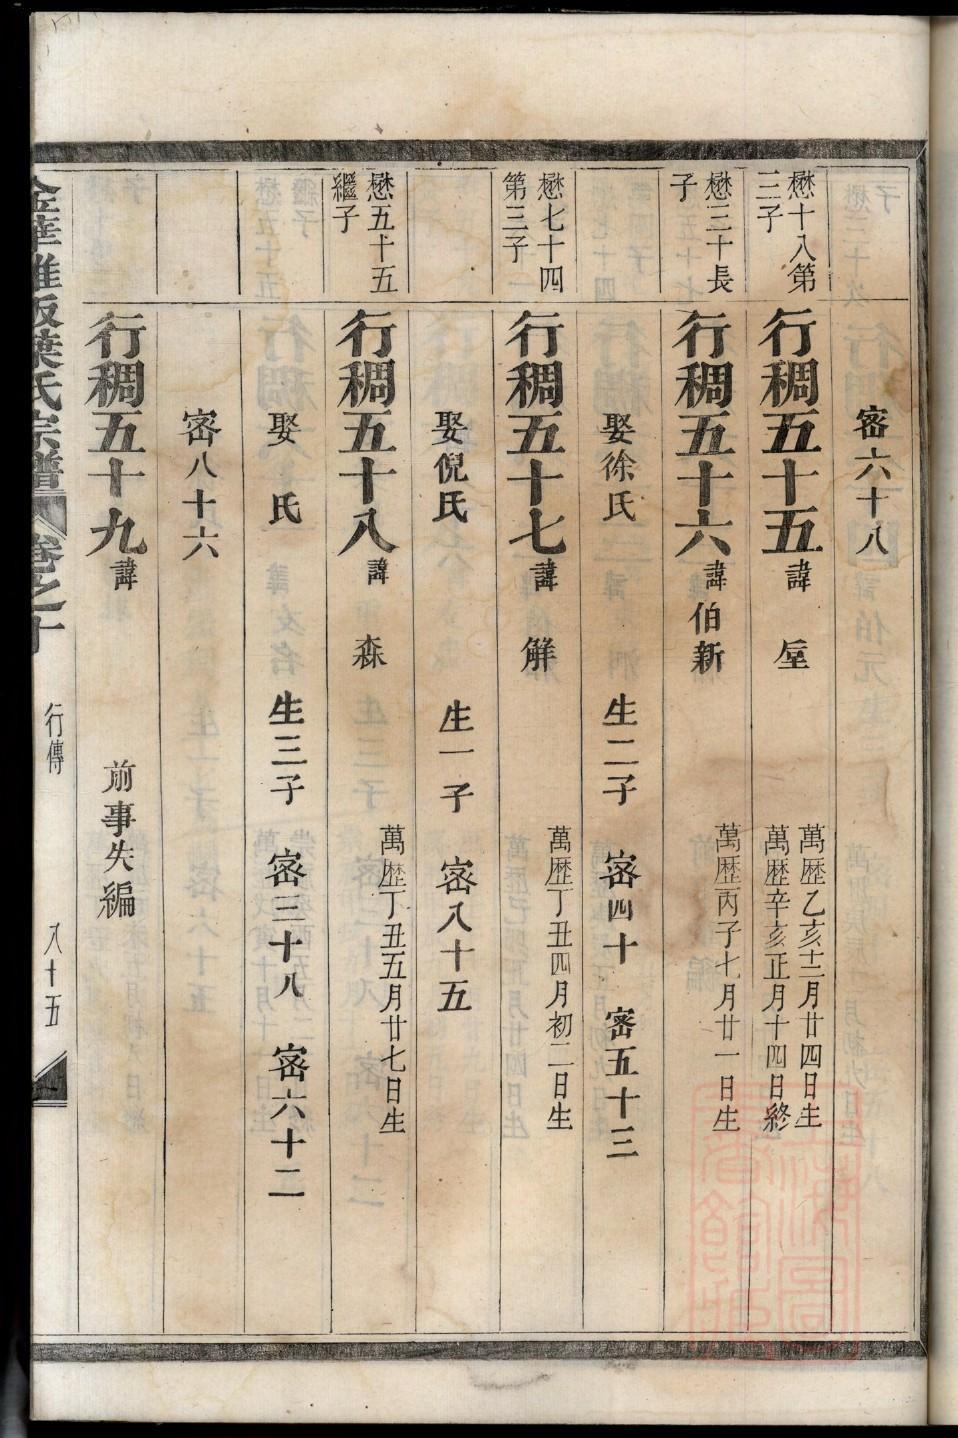 密六十八
懋十八第三子
行稠五十五 諱 垕 萬歴乙亥十二月廿四日生
萬歴辛亥正月十四日終
懋三十長子
行稠五十六 諱伯新 萬歴丙子七月廿一日生
娶徐氏 生二子 密四十 密五十三
懋七十四第三子
行稠五十七 諱 觧 萬歴丁丑四月初二日生
娶倪氏 生一子 密八十五
懋五十五繼子
行稠五十八 諱 森 萬歴丁丑五月廿七日生
娶 氏 生三子 密三十八 密六十二
密八十六
行稠五十九 諱 前事失編
金華 阪葉氏宗譜 卷之十 行傳 八十五